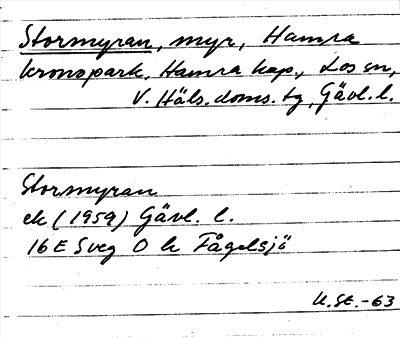 Stormyran, myr, Hamra
kronopark, Hamra kap., Los sn,
V. Häls. doms. tg, Gävl. l.
Stormyran
ek (1959) Gävl. l.
16 E Sveg O k Fågelsjö
U. St. -63